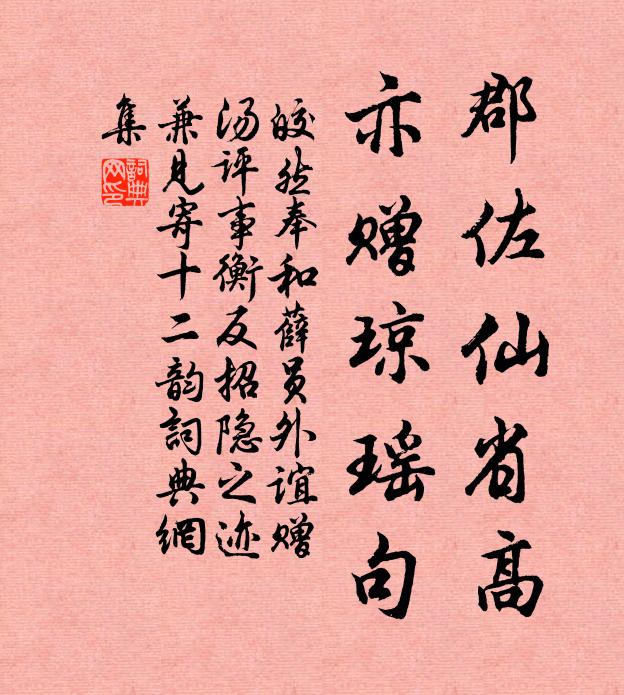 郡佐仙省高
亦赠琼瑶句
皎然奉和薛员外谊赠
汤评事衡反招隐之迹
兼见寄十二韵詞典網
集
詞典
网印